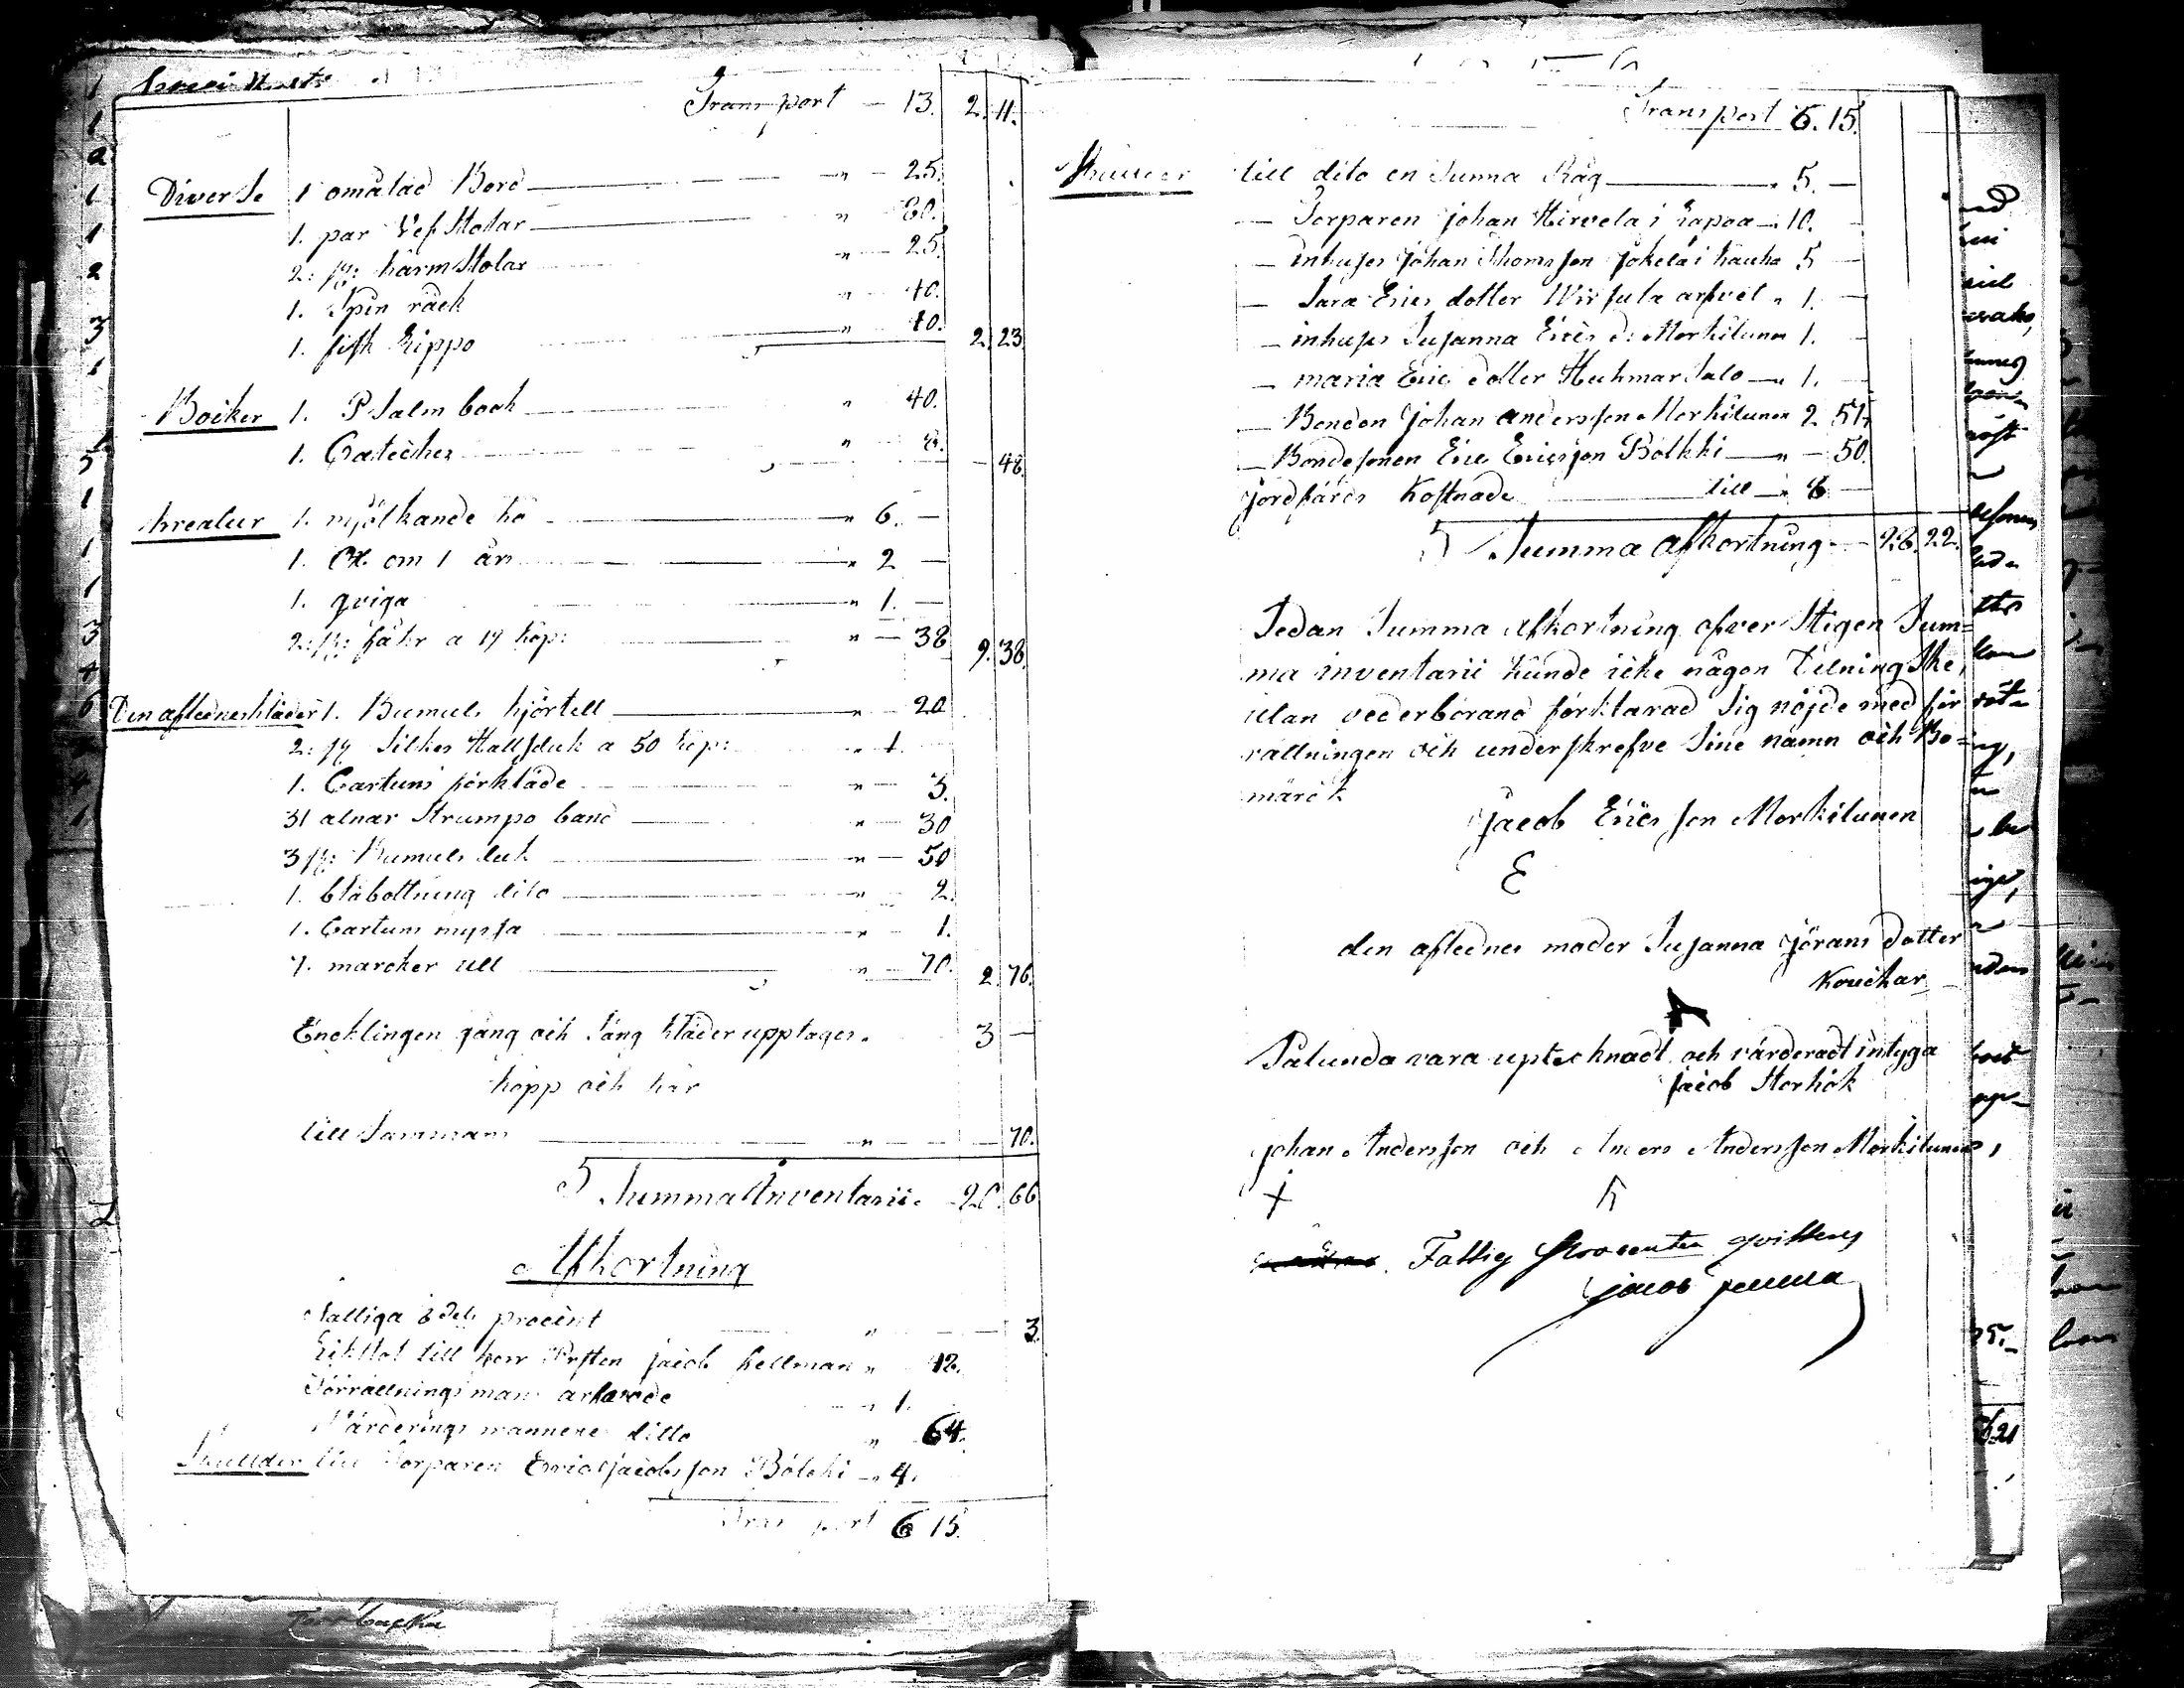 Transport — 13. 2. 11.
Diverse 1 omålad Bord — " — 25.
1. par Vef Stolar — " 80.
2: st: karm Stolar " — 25.
1. Spin råck " — 40.
1. fisk Lippo — " 10. 2. 23
Böcker 1. Psalm book — " 40.
1. Cateches — " 8. — 48.
kreatur 1. mjölkande ko — " 6. —
1. Ox om 1 år — " 2 —
1. qviga — " 1. —
2: st: fåhr a 19 kop: " — 38 9. 38.
Den aflednes kläder 1. Bumuls kjortell — " 20
2: st Silkes Hallsduk a 50 kop: " 1.
1. Cartuns förkläde — " — 3.
31 alnar Strumpo band — " — 30
3 st: Bumuls duk — " — 50
1. blåbottning dito — " 2.
1. Cartuns myssa — " 1.
7. marcker ull — " — 70. 2. 76.
Encklingen gång och Säng kläder upptages. 3 —
köpp och kär
till Sammans — " — 70.
Summa Inventarii. 20. 66
Afkortning
Fattiga 8dels procent — " — 3.
Likstol till herr Prosten Jacob Hellman " 42.
Förrättnings mans arfvode " 1.
Värderings mannene ditto " 64.
Skullder till Torparen Eric Jacobsson Bölcki — " 4.
Transport 6 15.
Transport 6. 15.
Skullder till dito en Tunna Råg — " 5. —
— Torparen Johan Hirvela i Lapoa — 10. —
— inhyses Johan Thomsson Jokela i kauha 5 —
— Sara Erics dotter arfvet " 1. —
— inhyses Susanna Erics d: Morkitunen 1. —
— maria Eric dotter Huhmarsalo — " 1. —
— Bonden Johan andersson Morkitunen 2. 57.
— Bondesonen Eric Ericsson Bolkki — " — 50.
Jordfärds Kostnade — till — " 8 —
Summa afkortning — 28. 22.
Sedan Summa afkortning öfver Stigen Sum=
ma inventarii kunde icke någon Delning Ske,
utan vederbörand förklarad Sig nöjde med för
rättningen och underskrefve Sine namn och Bo=
märck
Jacob Ericsson Morkitunen
E
den aflednes moder Susanna Jörans dotter
Kouckar
Sålunda vara uptecknadt och värderadt intyga
Jacob Storhök
Johan Andersson och Anders Andersson Morkitunen,
Fattig procenten qvitteras
Jacob